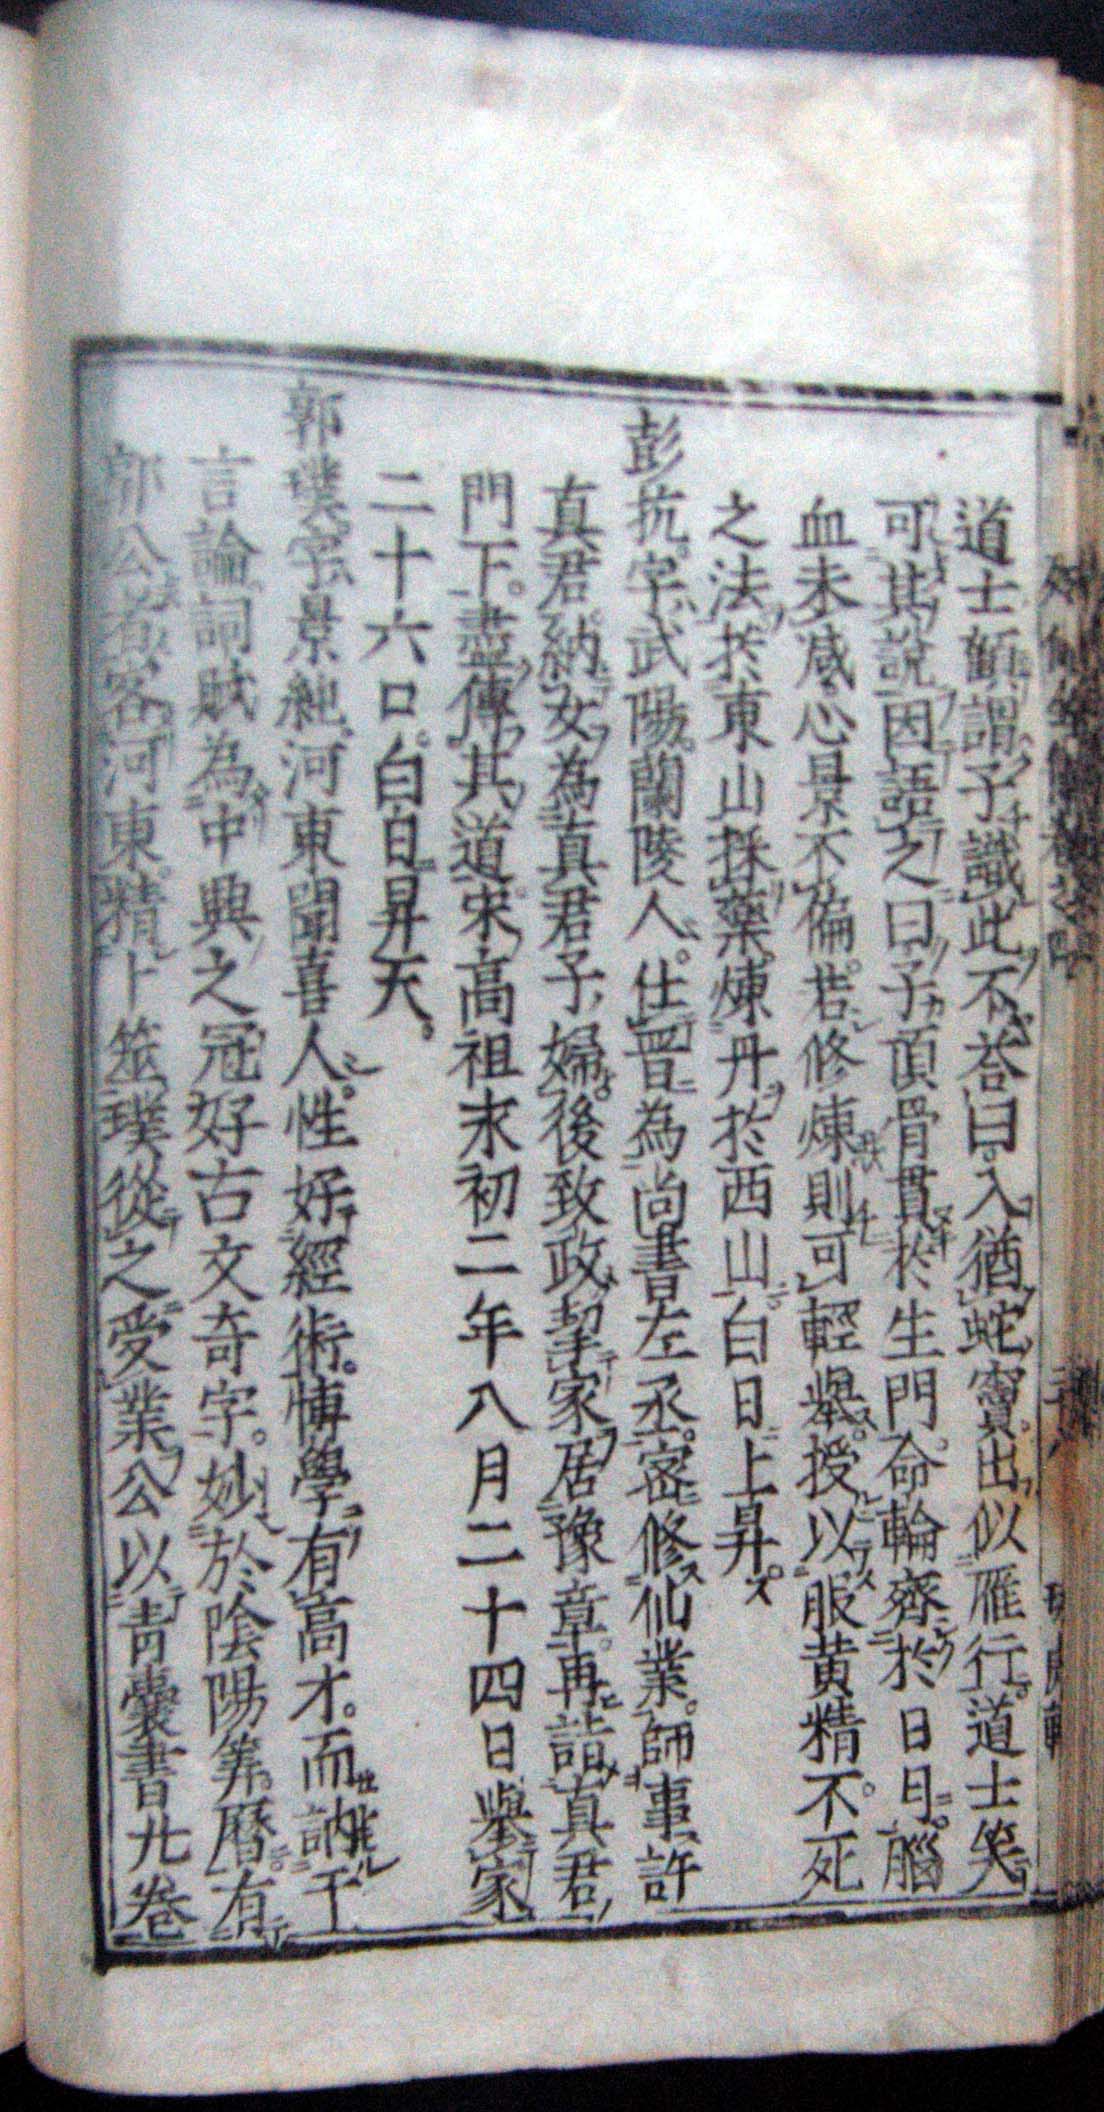 道士顧謂子識此不荅曰入猶蛇竄出似雁行道士笑
可其說因語之曰子頂骨貫於生門命輪齊於日月腦
血未減心景不偏若修煉則可輕舉授以服黃精不死
之法於東山採藥煉丹於西山白日上昇
彭抗字武陽蘭陵人仕晉為尚書左丞密修仙業師事許
真君納女為真君子婦後致政挈家居豫章再詣真君
門下盡傳其道宋高祖永初二年八月二十四日舉家
二十六口白日昇天
郭璞字景純河東聞喜人性好經術博學有高才而訥于
言論詞賦為中興之冠好古文奇字妙於陰陽筭曆有
郭公者客河東精卜筮璞從之受業公以青囊書九卷